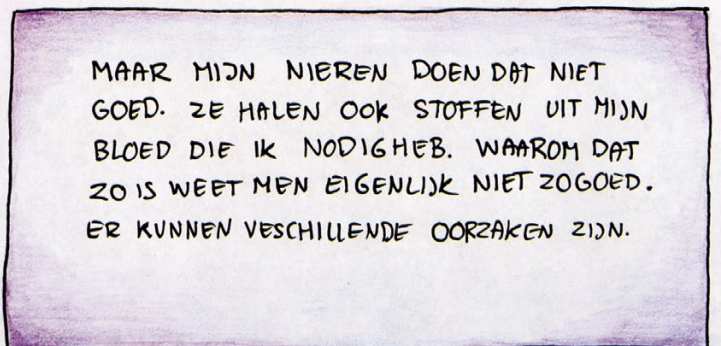 MAAR MIJN NIEREN DOEN DAT NIET
GOED. ZE HALEN OOK STOFFEN UIT MIJN
BLOED DIE IK NODIG HEB. WAAROM DAT
ZO IS WEET MEN EIGENLIJK NIET ZO GOED.
ER KUNNEN VESCHILLENDE OORZAKEN ZIJN.